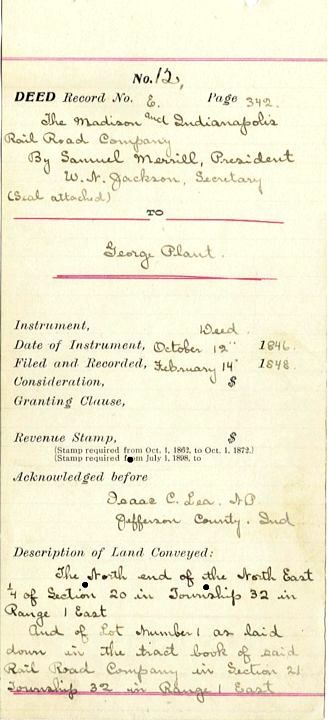 No. 12,
DEED Record No. E. Page 342.
The Madison and Indianapolis
Rail Road Company
By Samuel Merrill, President
W. N. Jackson, Secretary
(Seal attached)
TO
George Plant.
Instrument, Deed.
Date of Instrument, October 12" 1846.
Filed and Recorded, February 14" 1848.
Consideration, $
Granting Clause,
Revenue Stamp, $
(Stamp required from Oct. 1, 1862, to Oct. 1, 1872.)
(Stamp required from July 1, 1898, to
Acknowledged before
Isaac C. Lea. NP
Jefferson County. Ind
Description of Land Conveyed:
The North end of the North East
1/4 of Section 20 in Township 32 in
Range 1 East
And of Lot Number 1 as laid
down in the tract book of said
Rail Road Company in Section 21
Township 32 in Range 1 East